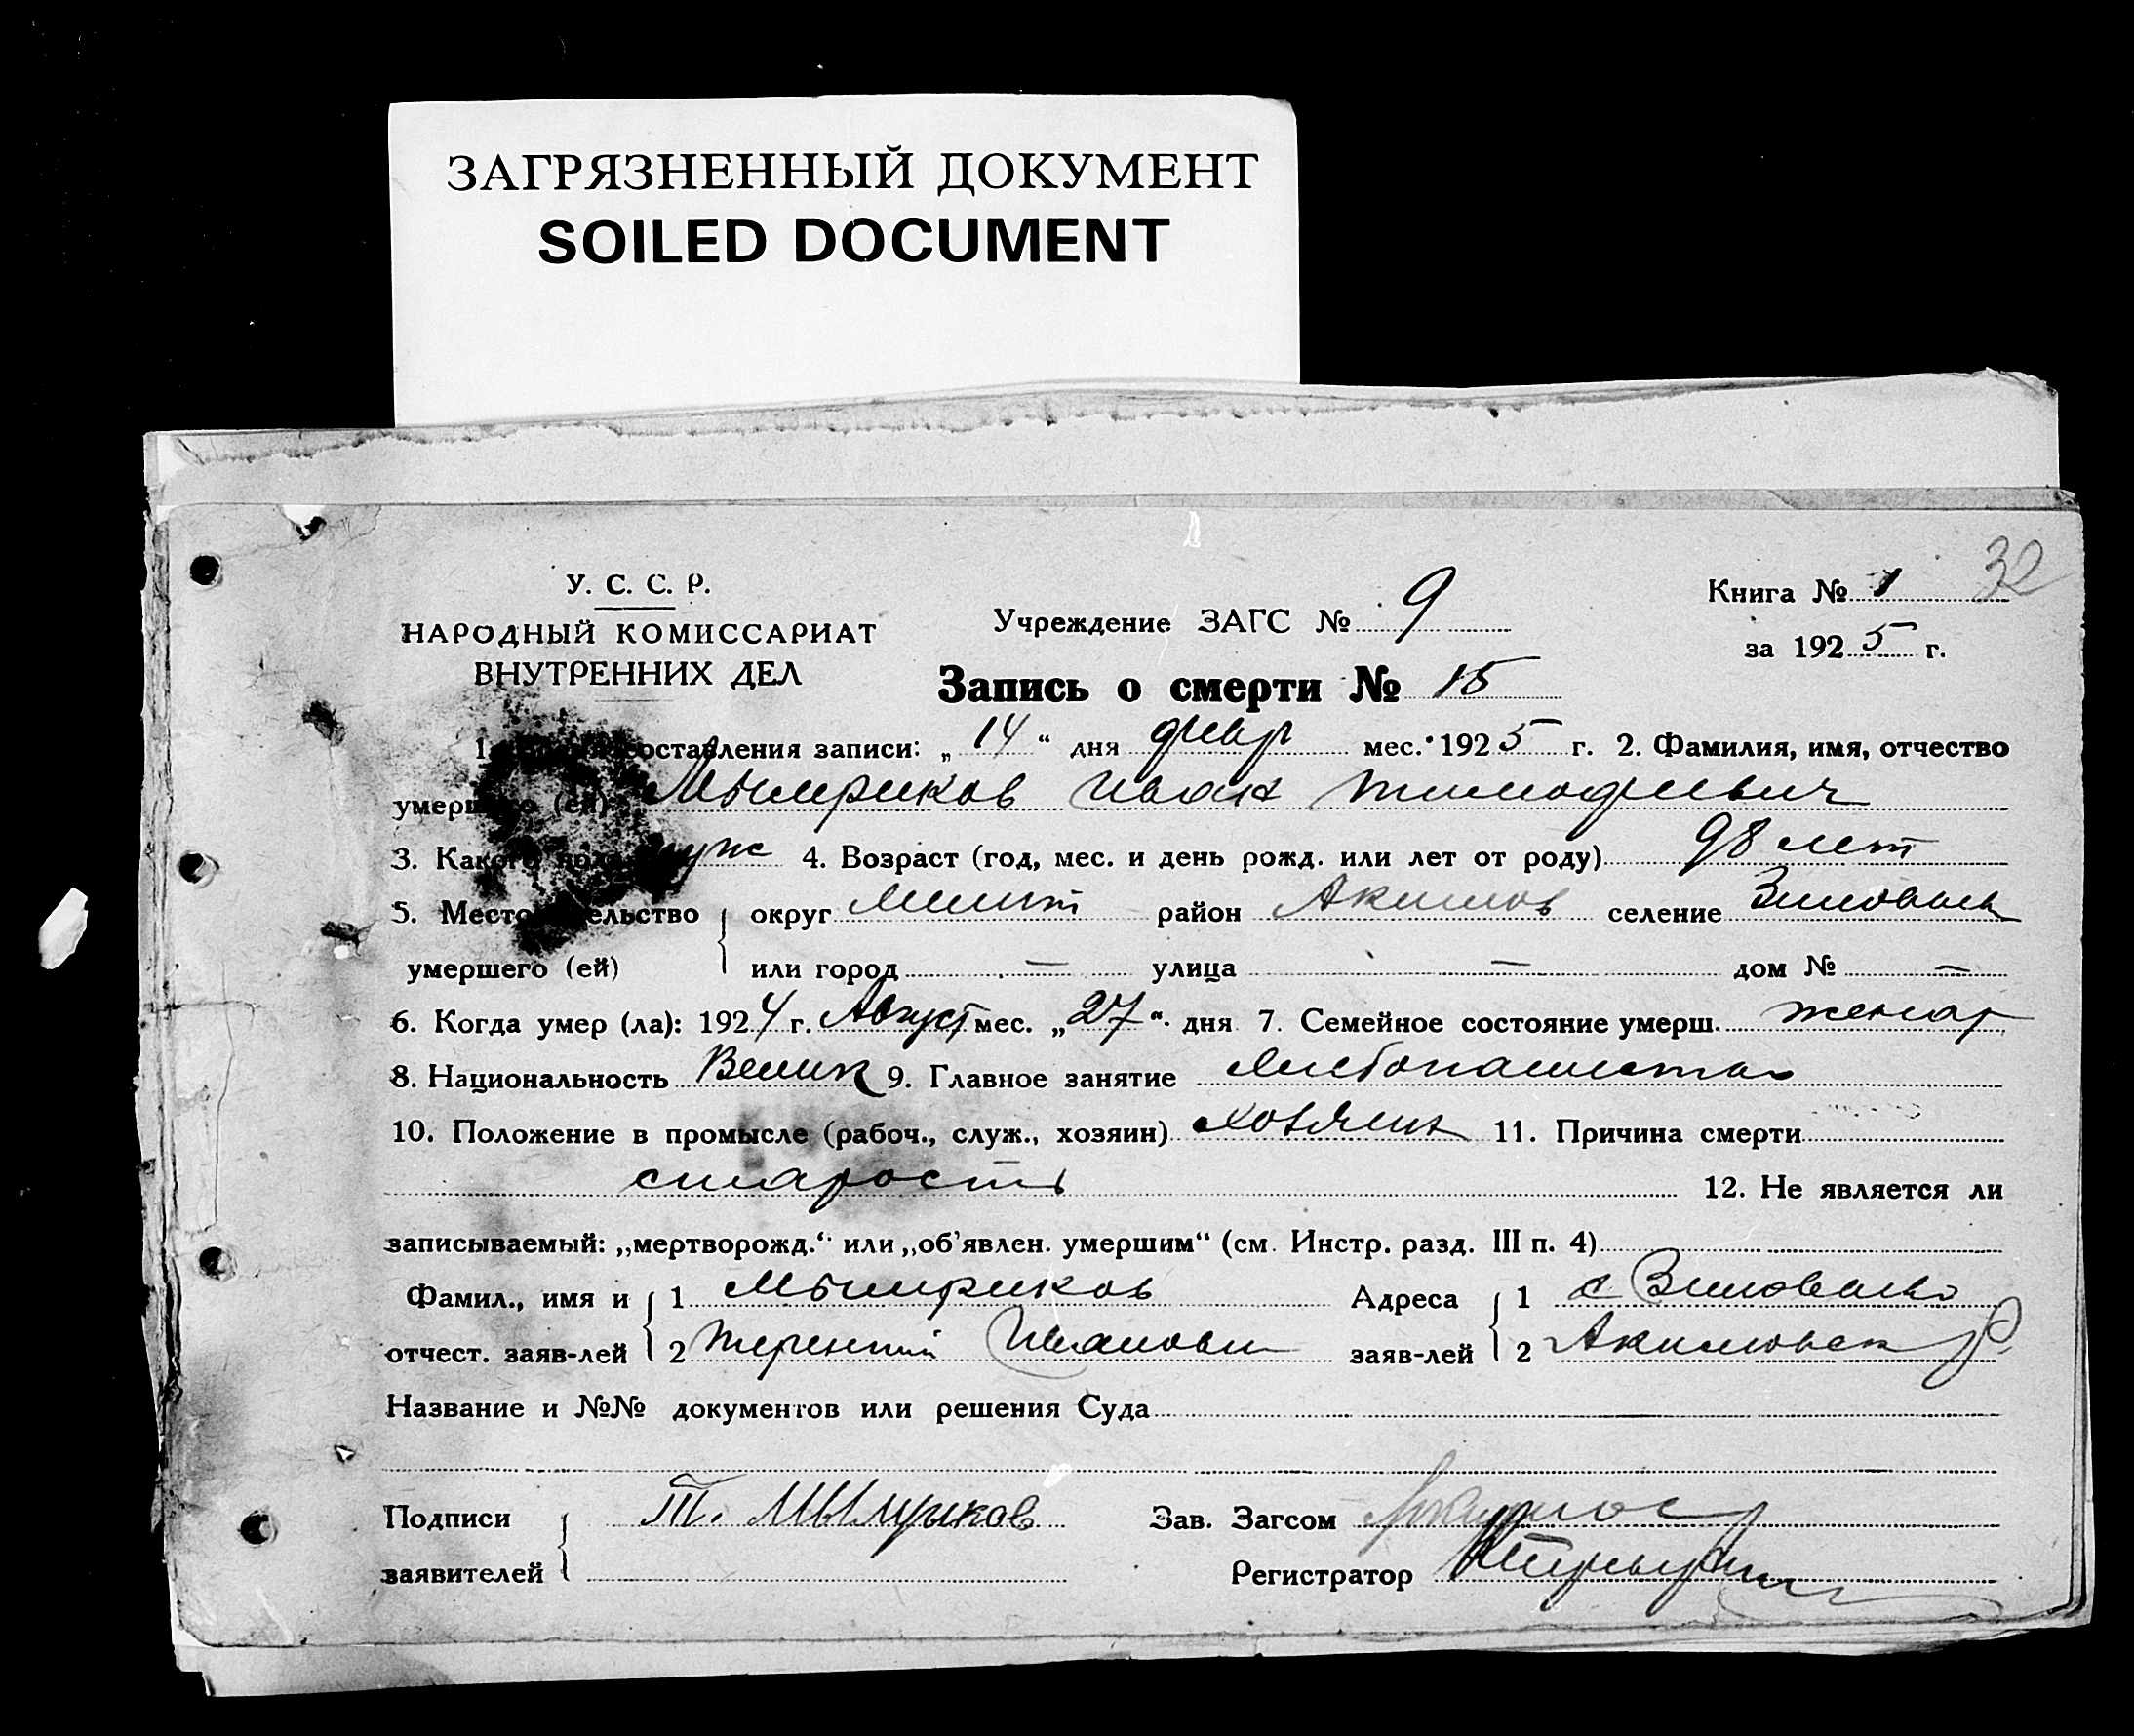 ЗАГРЯЗНЕННЫЙ ДОКУМЕНТ
SOILED DOCUMENT
32
У. С. С. Р.
НАРОДНЫЙ КОМИССАРИАТ
ВНУТРЕННИХ ДЕЛ
Учреждение ЗАГС № 9
Книга № 1
за 1925 г.
Запись о смерти № 15
1. составления записи: „14“ дня февр мес. 1925 г. 2. Фамилия, имя, отчество
умершего (ей) Мымриков Иван Тимофеевич
3. Какого пола муж 4. Возраст (год, мес. и день рожд. или лет от роду) 98 лет
5. Местожительство округ Мелит район Акимов селение
умершего (ей) или город — улица — дом № —
6. Когда умер (ла): 1924 г. Август мес. „27“ дня 7. Семейное состояние умерш. женат
8. Национальность Велик 9. Главное занятие
10. Положение в промысле (рабоч., служ., хозяин) хозяин 11. Причина смерти
старость 12. Не является ли
записываемый: „мертворожд.“ или „об'явлен. умершим“ (см. Инстр. разд. III п. 4)
Фамил., имя и 1 Мымриков Адреса 1 с
отчест. заяв-лей 2 Терентий Иванови заяв-лей 2 Акимовск р
Название и №№ документов или решения Суда
Подписи Т. Мымриков Зав. Загсом
заявителей Регистратор